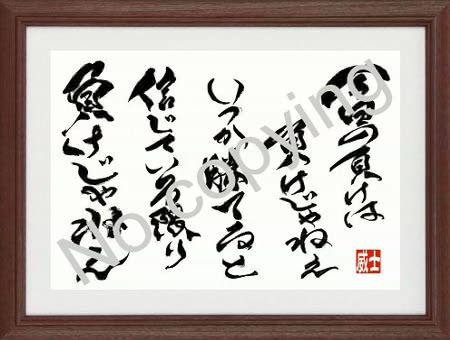 の負けは
負けじゃねえ
いつか勝てると
信じている限り
負けじゃねえ
士威
No copying